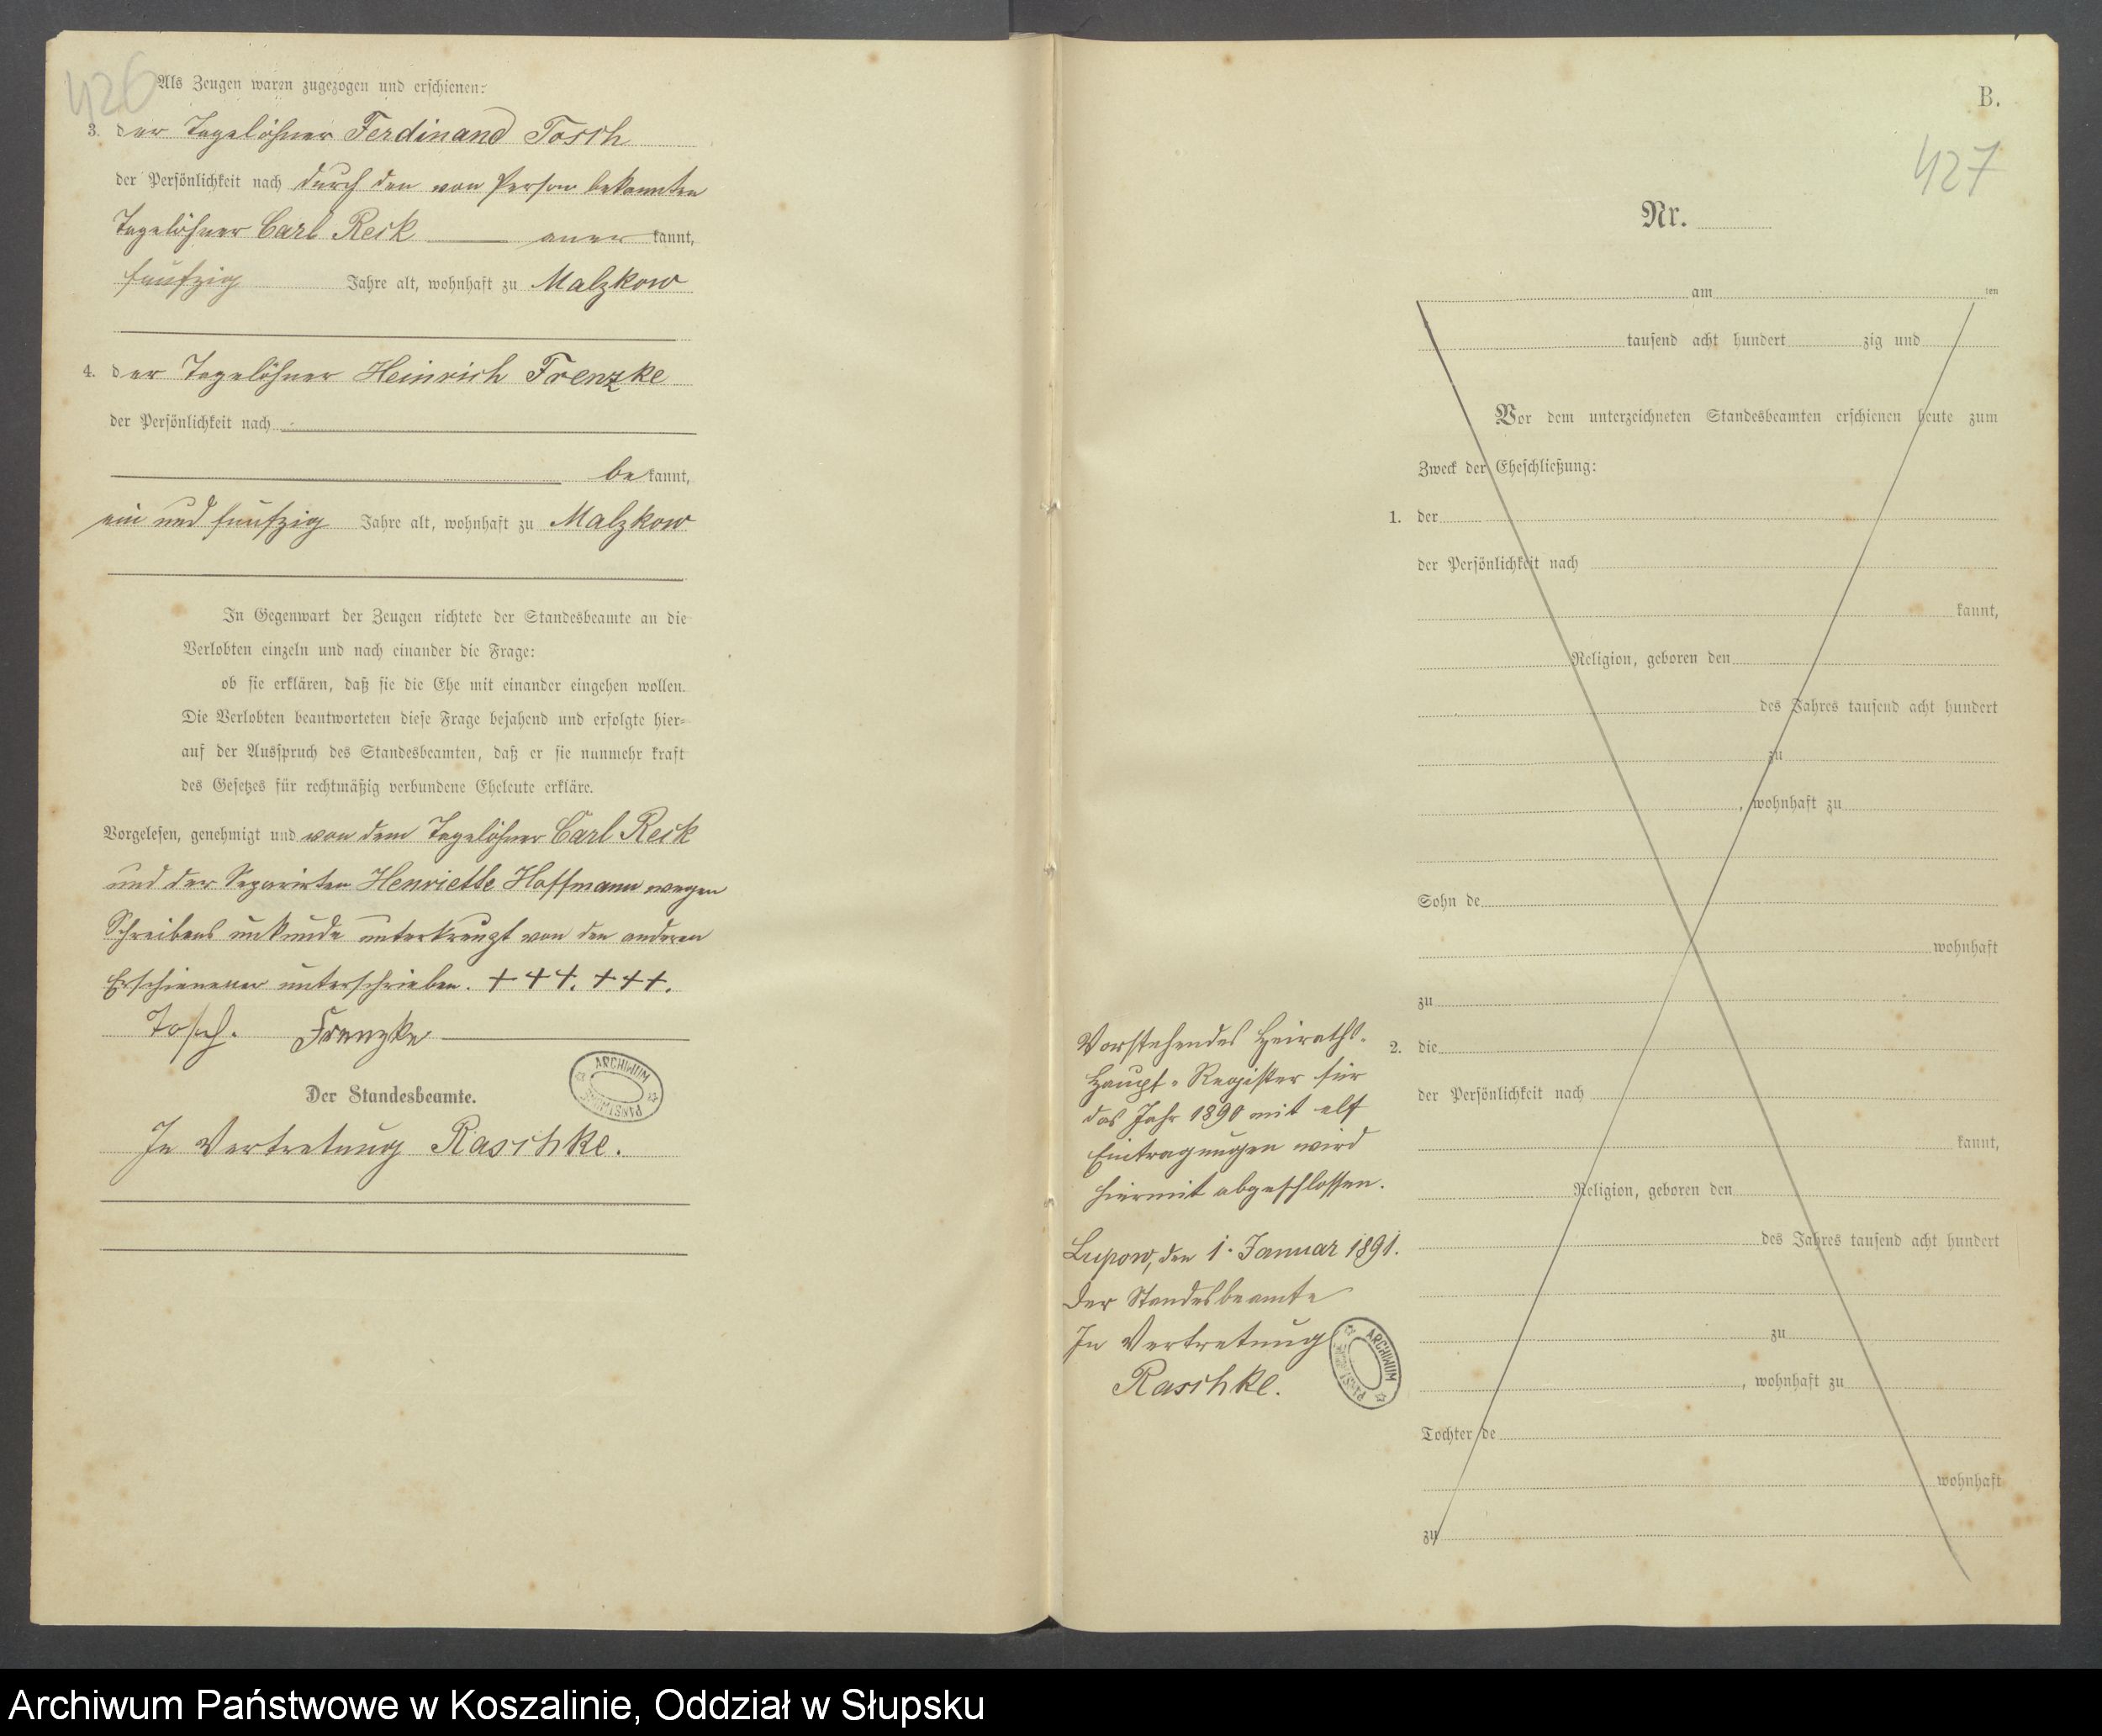 426
Als Zeugen waren zugezogen und erschienen:
3. der Tagelöhner Ferdinand Tosch
der Persönlichkeit nach durch den von Person bekannten
Tagelöhner Carl Reck anerkannt,
fünfzig Jahre alt, wohnhaft zu Malzkow
4. der Tagelöhner Heinrich Frenzke
der Persönlichkeit nach
bekannt,
ein und fünfzig Jahre alt, wohnhaft zu Malzkow
In Gegenwart der Zeugen richtete der Standesbeamte an die
Verlobten einzeln und nach einander die Frage:
ob sie erklären, daß sie die Ehe mit einander eingehen wollen.
Die Verlobten beantworteten diese Frage bejahend und erfolgte hier-
auf der Ausspruch des Standesbeamten, daß er sie nunmehr kraft
des Gesetzes für rechtmäßig verbundene Eheleute erkläre.
Vorgelesen, genehmigt und von dem Tagelöhner Carl Reck
und der Separirten Henriette Hoffmann wegen
Schreibens unkunde unterkreuzt von den anderen
Erschienenen unterschrieben. +++. +++.
Tosch. Frenzke
ARCHIWUM
Der Standesbeamte.
In Vertretung Raschke.
B.
427
Nr.
am ten
tausend acht hundert zig und
Vor dem unterzeichneten Standesbeamten erschienen heute zum
Zweck der Eheschließung:
1. der
der Persönlichkeit nach
kannt,
Religion, geboren den
des Jahres tausend acht hundert
zu
, wohnhaft zu
Sohn de
wohnhaft
zu
2. die
der Persönlichkeit nach
kannt,
Religion, geboren den
des Jahres tausend acht hundert
zu
, wohnhaft zu
Tochter de
wohnhaft
zu
Vorstehendes Heiraths-
Haupt-Register für
das Jahr 1890 mit elf
Eintragungen wird
hiermit abgeschlossen.
Lupow, den 1. Januar 1891.
Der Standesbeamte
In Vertretung
Raschke.
ARCHIWUM
Archiwum Państwowe w Koszalinie, Oddział w Słupsku